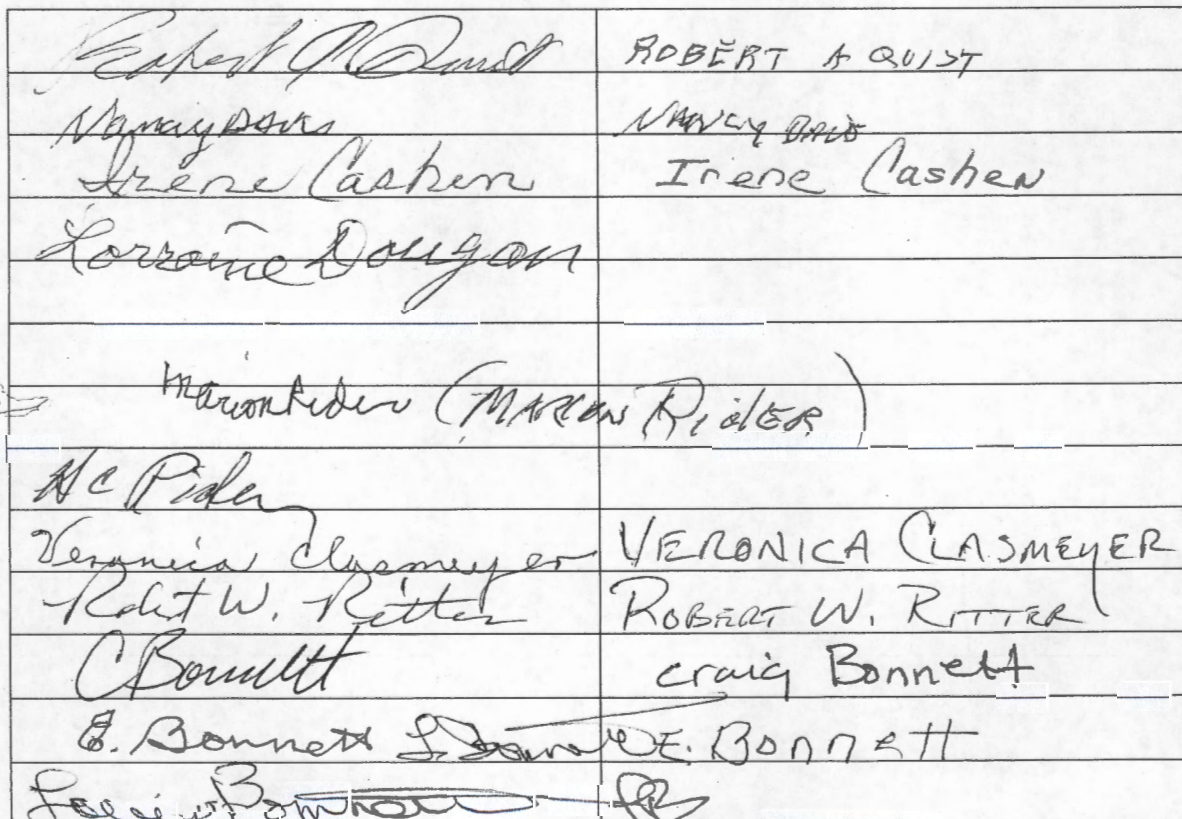 Robert A Quist ROBERT A QUIST
Nancy Davis NANCY
Irene Cashen Irene Cashen
Lorraine Dougan
Marion Rider (MARION RIDER)
H C Rider
Veronica Clasmeyer VERONICA CLASMEYER
Robert W. Ritter ROBERT W. RITTER
C Bonnett Craig Bonnett
E. Bonnett E. Bonnett
Bonnett